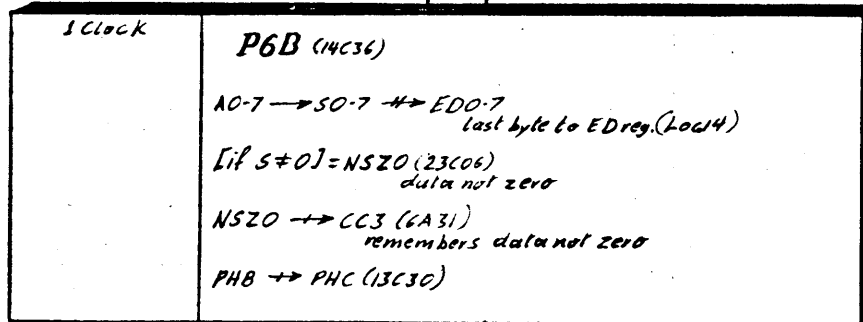 1 Clock
P6B (14C36)
A0-7 → S0-7 ⇸ ED0-7
last byte to ED reg. (Low14)
[if S≠0] = NSZ0 (23C06)
data not zero
NSZ0 ⇸ CC3 (6A31)
remembers data not zero
PHB ⇸ PHC (13C30)